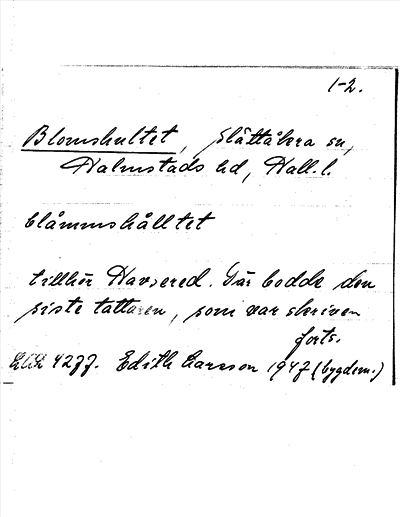 1-2.
Blomshultet, Slättåkra sn,
Halmstads hd, Hall. l.
blåmmshålltet
tillhör Havsered. Där bodde den
siste tattaren, som var skriven
forts.
4277. Edith Larsson 1947 (bygdem.)